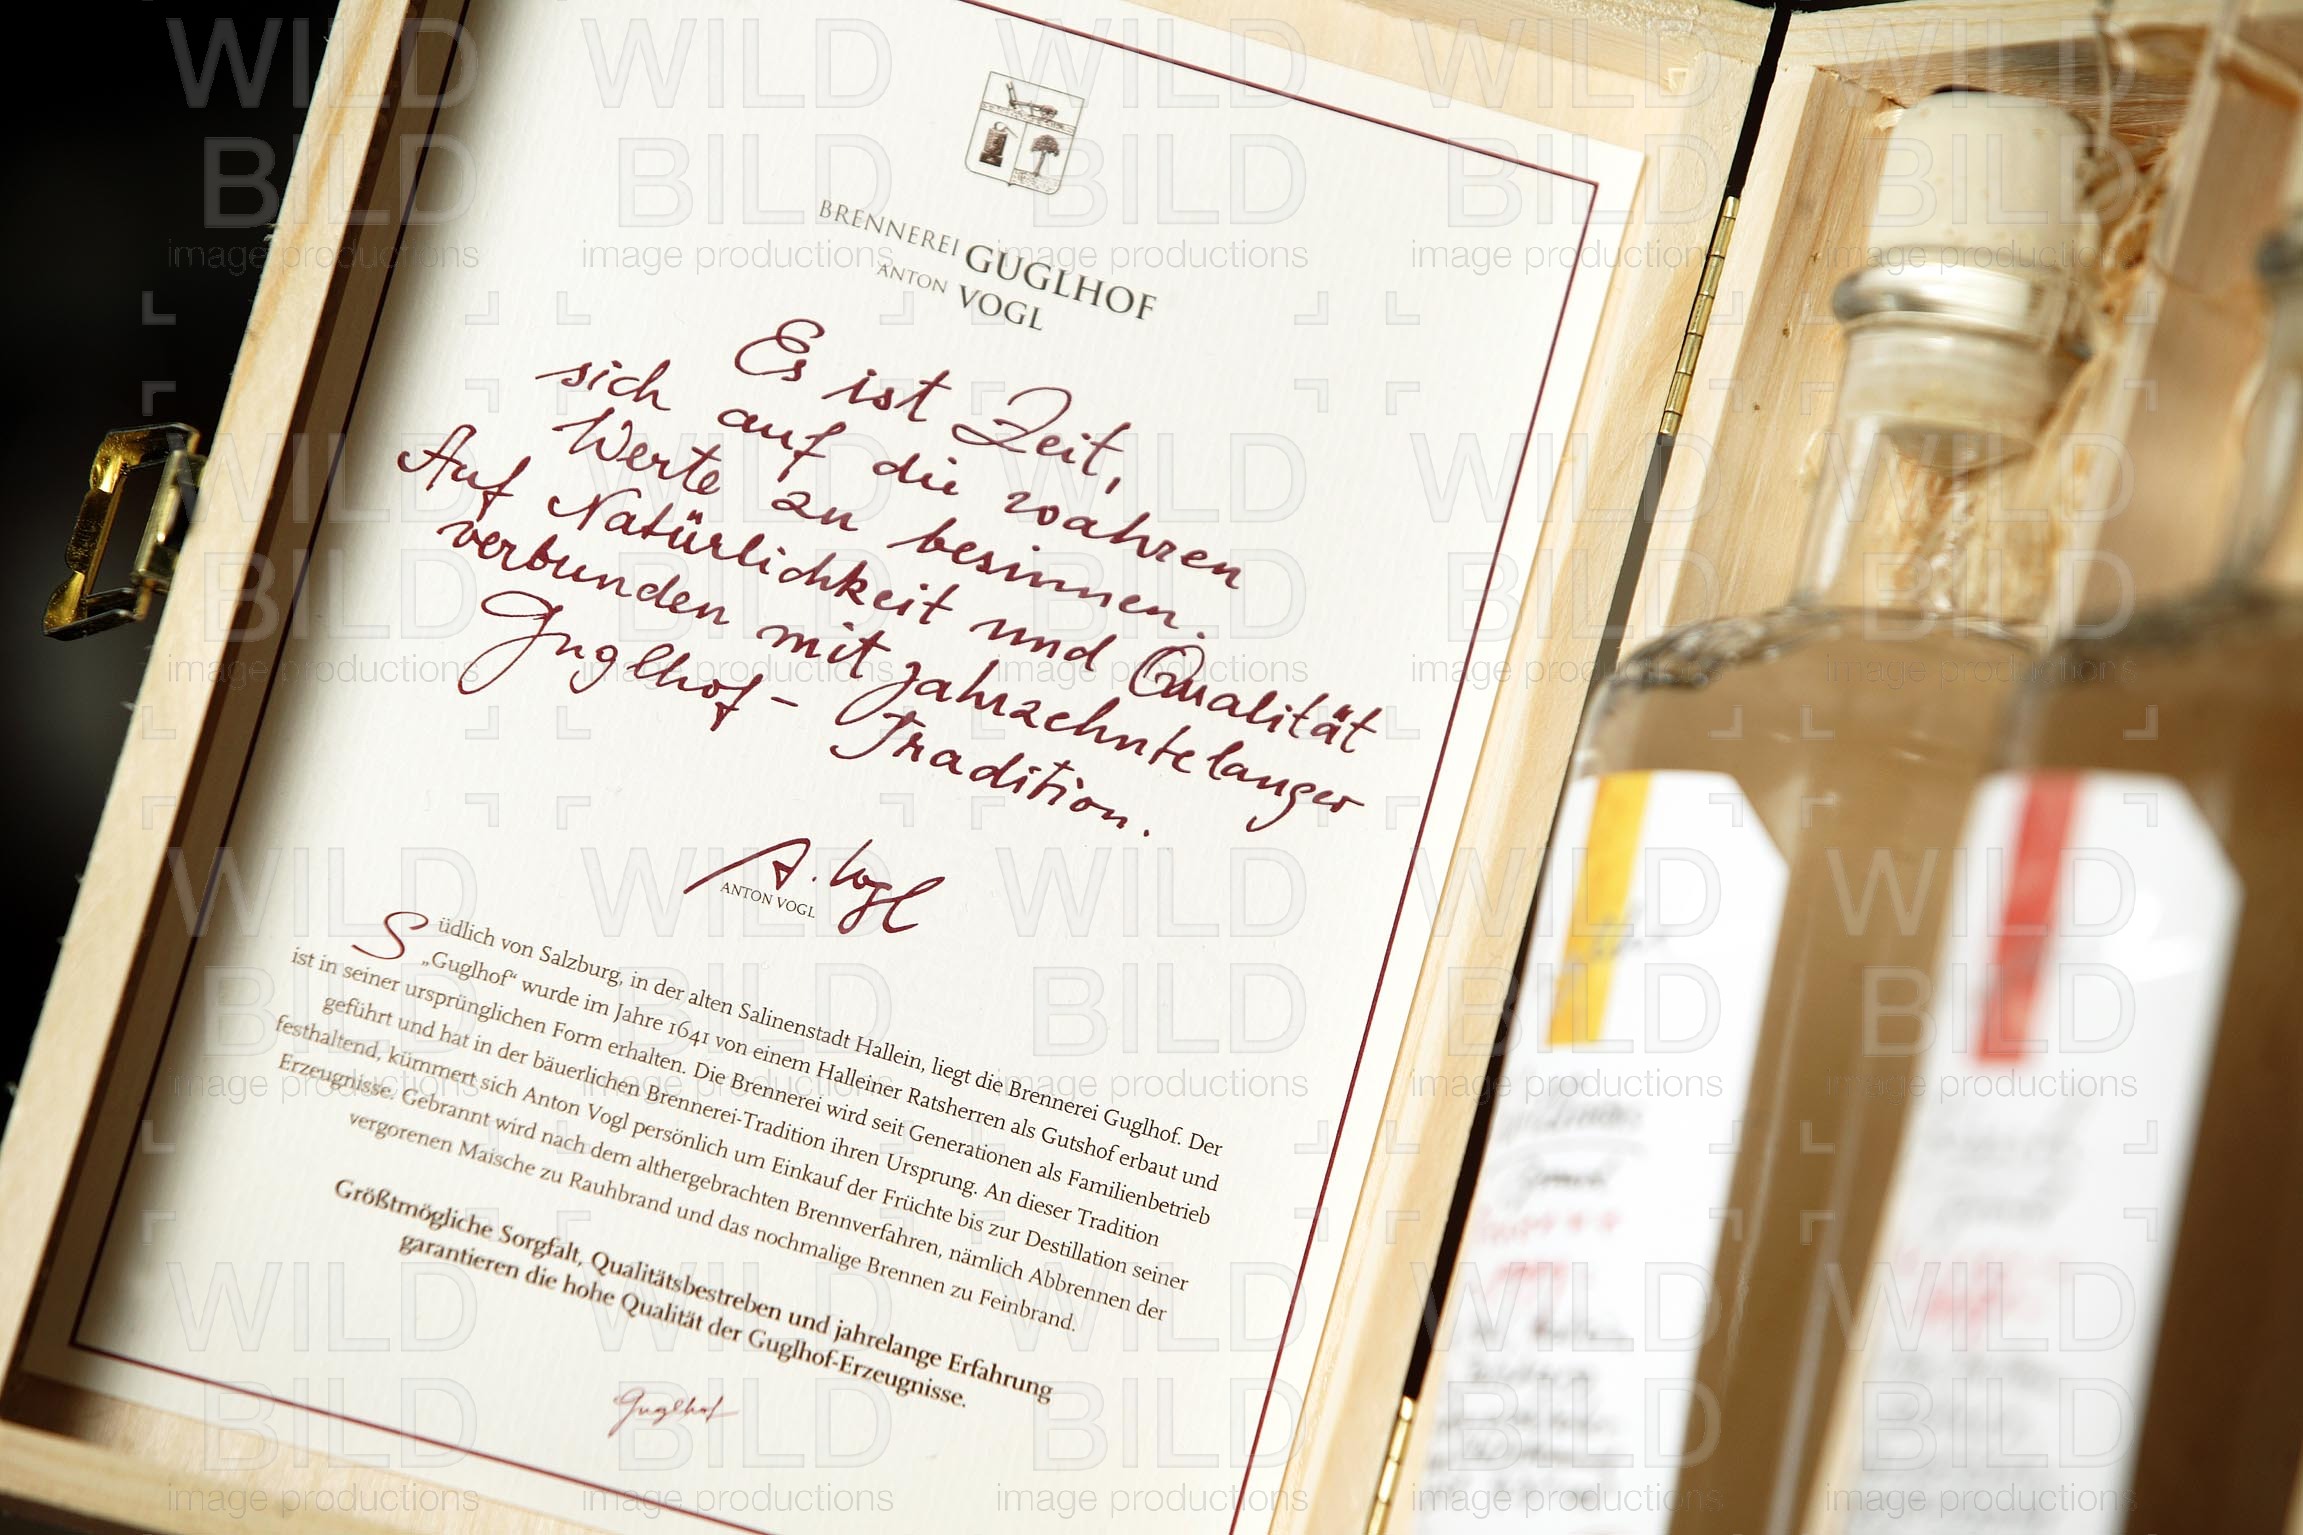 BRENNEREI GUGLHOF
ANTON VOGL
Es ist Zeit,
sich auf die wahren
Werte zu besinnen.
Auf Natürlichkeit und Qualität
verbunden mit jahrzehntelanger
Guglhof-Tradition.
A. Vogl
ANTON VOGL
Südlich von Salzburg, in der alten Salinenstadt Hallein, liegt die Brennerei Guglhof. Der
„Guglhof“ wurde im Jahre 1641 von einem Halleiner Ratsherren als Gutshof erbaut und
ist in seiner ursprünglichen Form erhalten. Die Brennerei wird seit Generationen als Familienbetrieb
geführt und hat in der bäuerlichen Brennerei-Tradition ihren Ursprung. An dieser Tradition
festhaltend, kümmert sich Anton Vogl persönlich um Einkauf der Früchte bis zur Destillation seiner
Erzeugnisse. Gebrannt wird nach dem althergebrachten Brennverfahren, nämlich Abbrennen der
vergorenen Maische zu Rauhbrand und das nochmalige Brennen zu Feinbrand.
Größtmögliche Sorgfalt, Qualitätsbestreben und jahrelange Erfahrung
garantieren die hohe Qualität der Guglhof-Erzeugnisse.
Guglhof
WILD
BILD
image productions